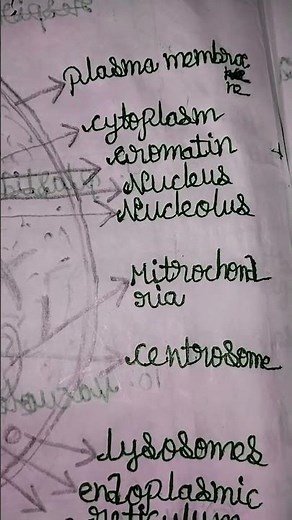 plasma membrac
ne
cytoplasm
cromatin
Nucleus
Nucleolus
Mitrochond
ria
centrosome
lysosomes
endoplasmic
reticulum